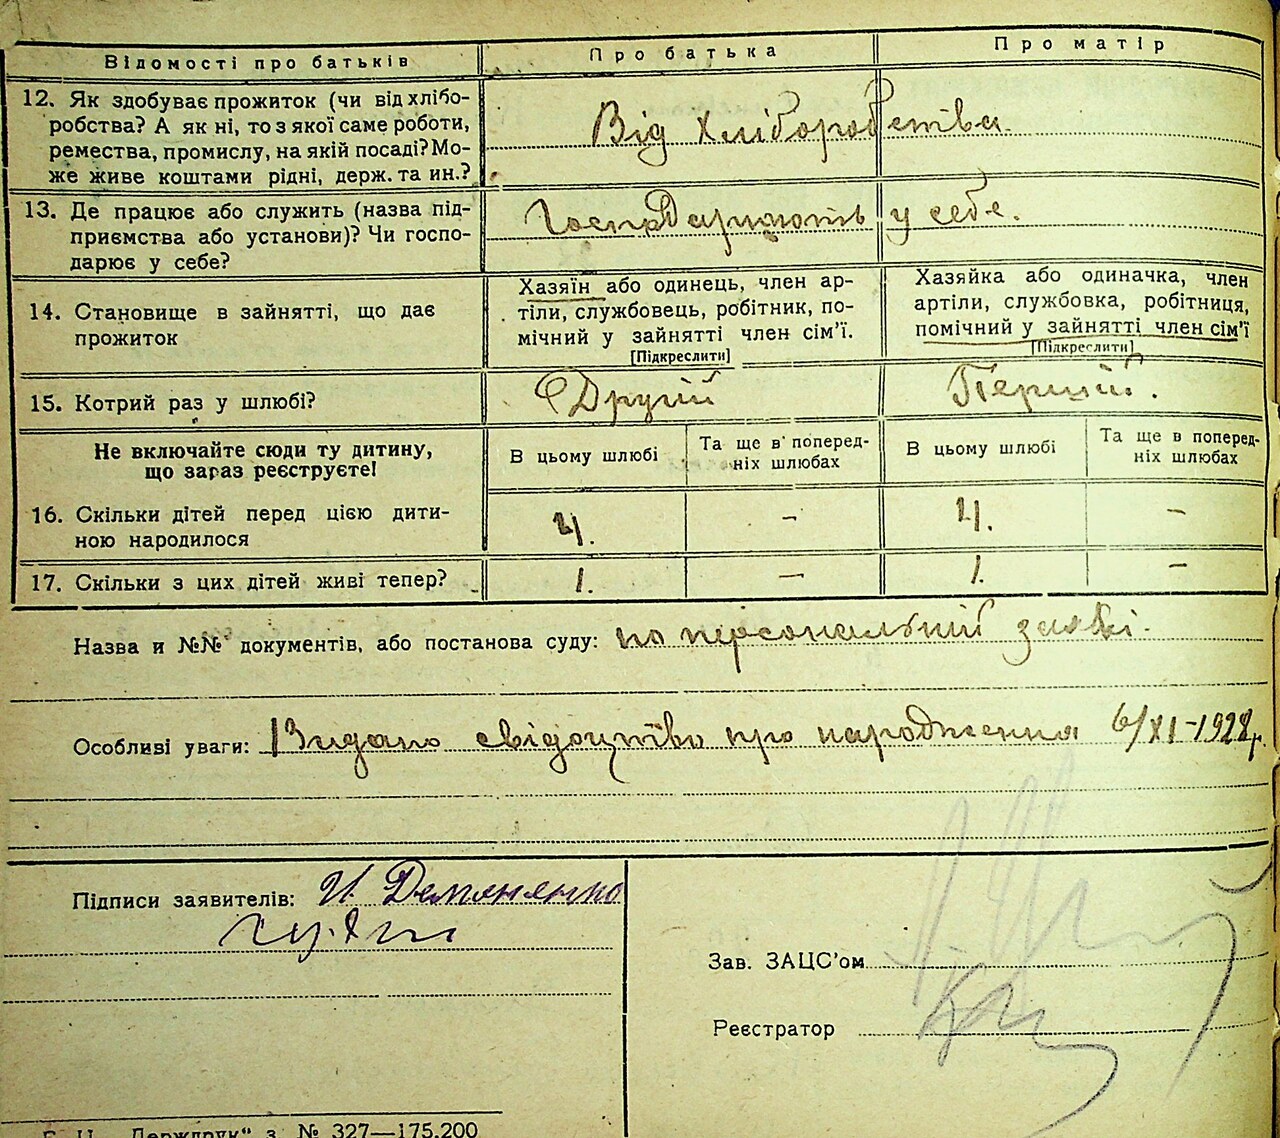 Відомості про батьків
Про батька
Про матір
12. Як здобуває прожиток (чи від хлібо-
робства? А як ні, то з якої саме роботи,
ремества, промислу, на якій посаді? Мо-
же живе коштами рідні, держ. та ин.?
Від хліборобства.
13. Де працює або служить (назва під-
приємства або установи)? Чи госпо-
дарює у себе?
Господарюють у себе.
14. Становище в зайнятті, що дає
прожиток
Хазяїн або одинець, член ар-
тіли, службовець, робітник, по-
мічний у зайнятті член сім'ї.
[Підкреслити]
Хазяйка або одиначка, член
артіли, службовка, робітниця,
помічний у зайнятті член сім'ї
[Підкреслити]
15. Котрий раз у шлюбі?
Другій
Перший.
Не включайте сюди ту дитину,
що зараз реєструєте!
В цьому шлюбі
Та ще в поперед-
ніх шлюбах
В цьому шлюбі
Та ще в поперед-
ніх шлюбах
16. Скільки дітей перед цією дити-
ною народилося
4. – 4. –
17. Скільки з цих дітей живі тепер?
1. – 1. –
Назва и №№ документів, або постанова суду: по персональній заяві.
Особливі уваги: Видано свідоцтво про народження 6/XI-1928р.
Підписи заявителів: И Демяненко
Зав. ЗАЦС'ом
Реєстратор
Держдрук" з. № 327—175.200